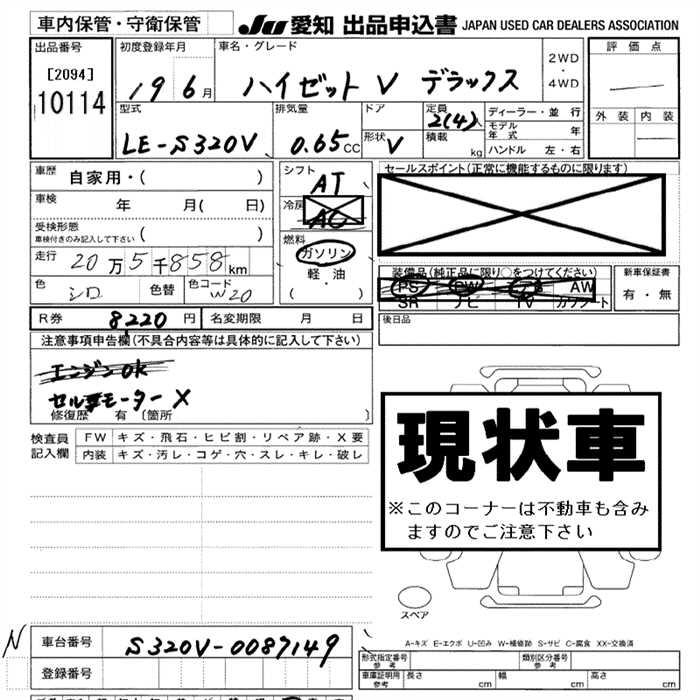 車内保管・守衛保管
JU 愛知 出品申込書 JAPAN USED CAR DEALERS ASSOCIATION
出品番号
[2094]
10114
初度登録年月
19 6月
車名・グレード
ハイゼット V デラックス
2WD
・
4WD
評価点
外装 内装
型式
LE-S320V
排気量
0.65CC
ドア
形状 V
定員 2(4)
積載 kg
ディーラー・並行
モデル年式 年
ハンドル 左・右
車歴 自家用・( )
車検 年 月( 日)
受検形態
車検付きのみ記入して下さい ( )
走行 20万5千858km
色 シロ 色替 色コード W20
シフト AT
冷房 AC
燃料
ガソリン
軽・油
( ・ )
セールスポイント(正常に機能するものに限ります)
装備品(純正品に限り○をつけてください)
PS PW AW
SR ナビ TV カセット
新車保証書
有・無
R券 8220円 名変期限 月 日
後日品
注意事項申告欄(不具合内容等は具体的に記入して下さい)
エンジンOK
セルモーター X
修復歴 有 〔箇所 〕
検査員
記入欄
FW キズ・飛石・ヒビ割・リペア跡・X要
内装 キズ・汚レ・コゲ・穴・スレ・キレ・破レ
現状車
※このコーナーは不動車も含み
ますのでご注意下さい
スペア
A-キズ E-エクボ U-凹み W-補修跡 S-サビ C-腐食 XX-交換済
N
車台番号 S320V-0087149
登録番号
形式指定番号
参考
類別区分番号
参考
車庫証明用
参考
長さ cm 幅 cm 高さ cm